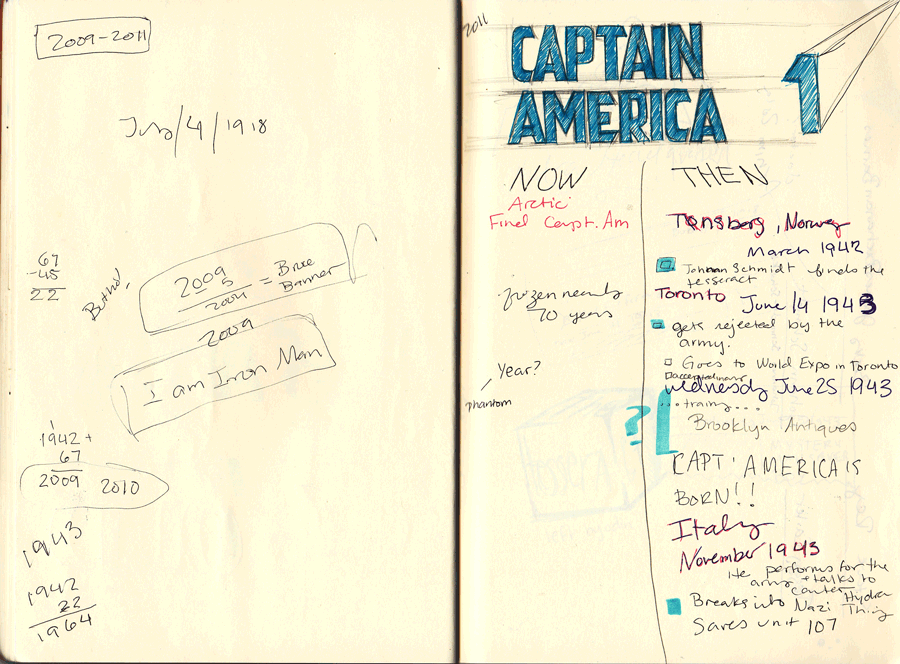 2009-2011
July/4/1918
67
-45
22
2009
5
2004
= Bruce
Banner
2009
I am Iron Man
1942 +
1
67
2009 2010
1943
1942
22
1964
2011
CAPTAIN
AMERICA
1
NOW
Arctic
Find Capt. Am
frozen nearly
70 years
Year?
phantom
?
THEN
Tonsberg, Norway
March 1942
Johnan Schmidt finds the
tesseract
Toronto June 14 1943
gets rejected by the
army.
Goes to World Expo in Toronto
Wednesday June 25 1943
...traing...
Brooklyn Antiques
CAPT. AMERICA IS
BORN!!
Italy
November 1943
He performs for the
army + talks to
Carter
Breaks into Nazi Hydra
Thing
Saves unit 107